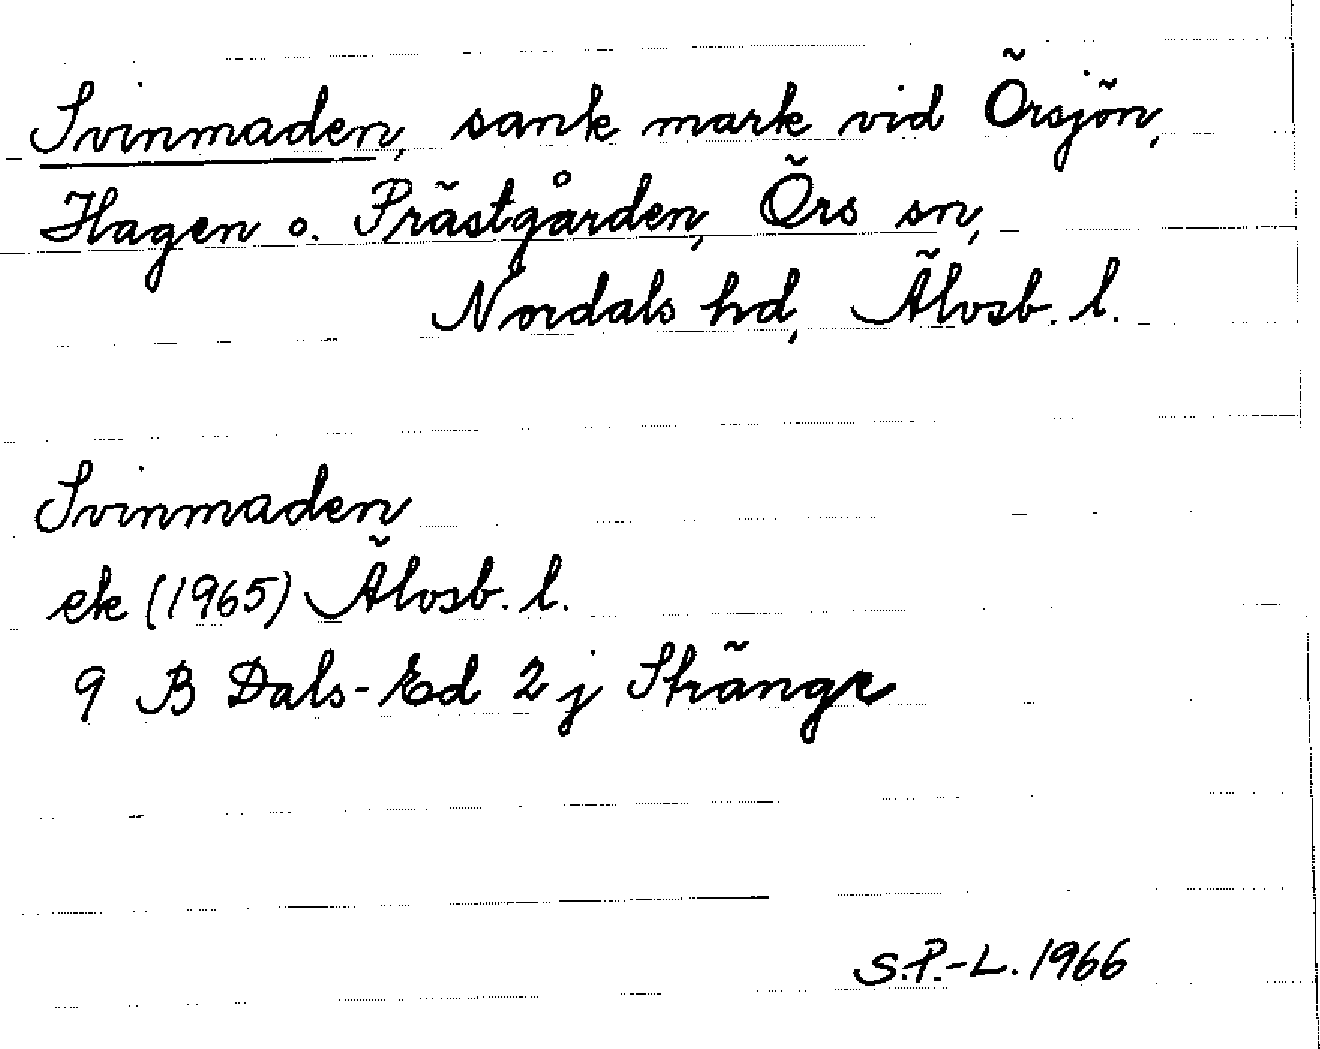 Svinmaden, sank mark vid Örsjön,
Hagen o. Prästgården, Örs sn,
Nordals hd, Älvsb. l.
Svinmaden
ek (1965) Älvsb. l.
9 B Dals-Ed 2 j Stränge
S.P.-L. 1966